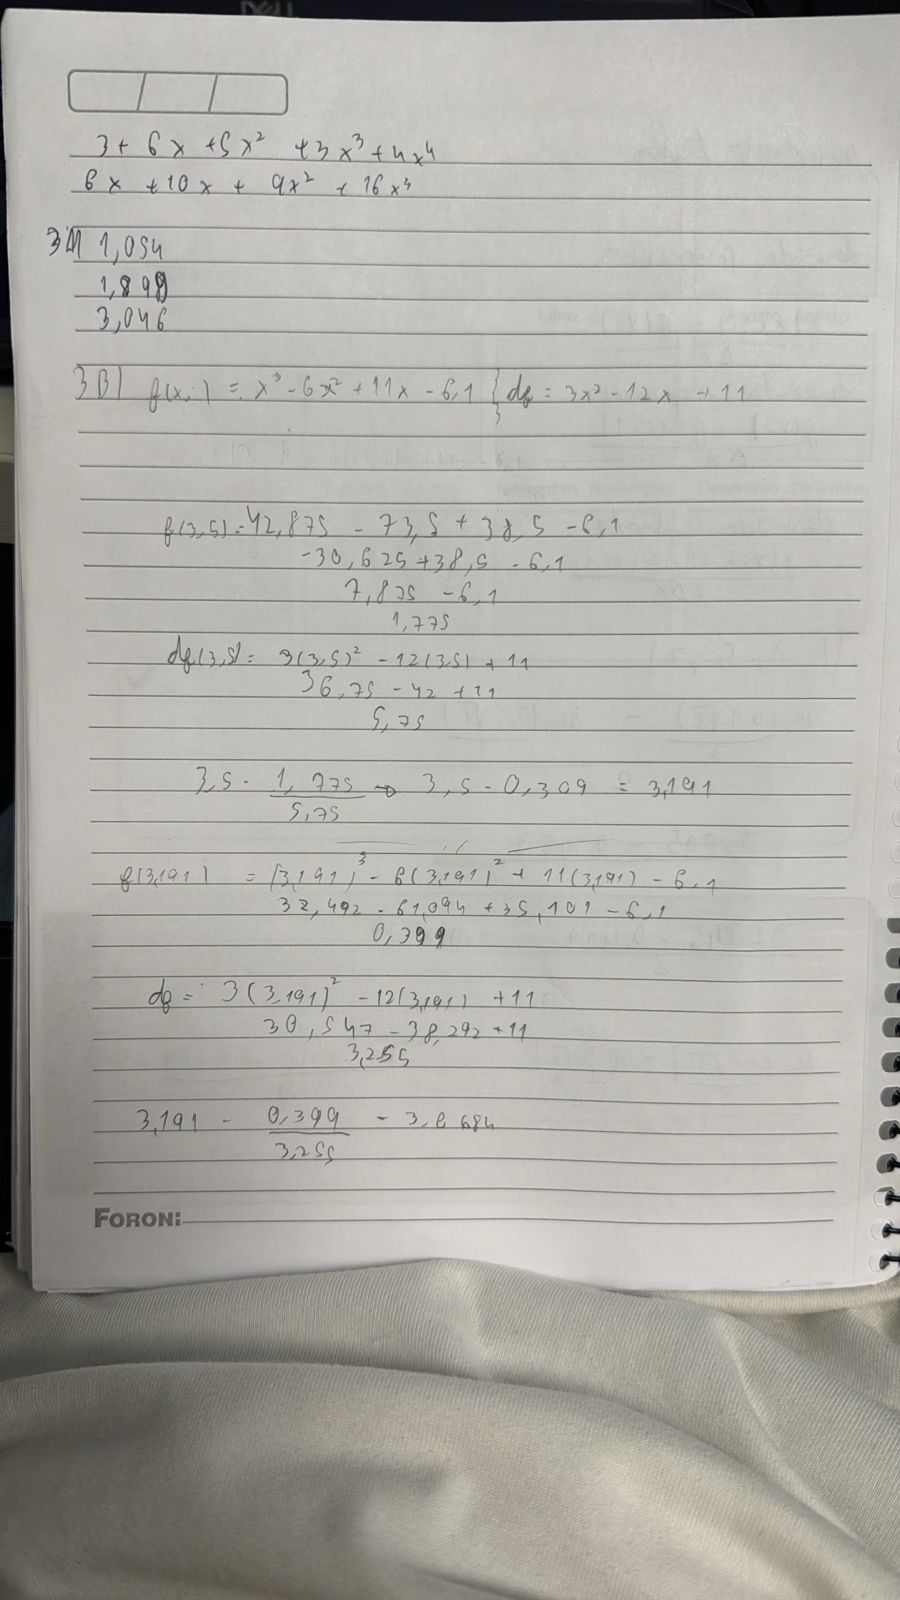 3 + 6x + 5x² + 3x³ + 4x⁴
6x + 10x + 9x² + 16x³
3A) 1,054
1,898
3,046
3B) f(x) = x³ - 6x² + 11x - 6,1 } df = 3x² - 12x + 11
f(3,5) = 42,875 - 73,5 + 38,5 - 6,1
-30,625 + 38,5 - 6,1
7,875 - 6,1
1,775
df(3,5) = 3(3,5)² - 12(3,5) + 11
36,75 - 42 + 11
5,75
3,5 - 1,775 / 5,75 → 3,5 - 0,309 = 3,191
f(3,191) = (3,191)³ - 6(3,191)² + 11(3,191) - 6,1
32,492 - 61,094 + 35,101 - 6,1
0,399
df = 3(3,191)² - 12(3,191) + 11
30,547 - 38,292 + 11
3,255
3,191 - 0,399 / 3,255 = 3,0684
FORONI